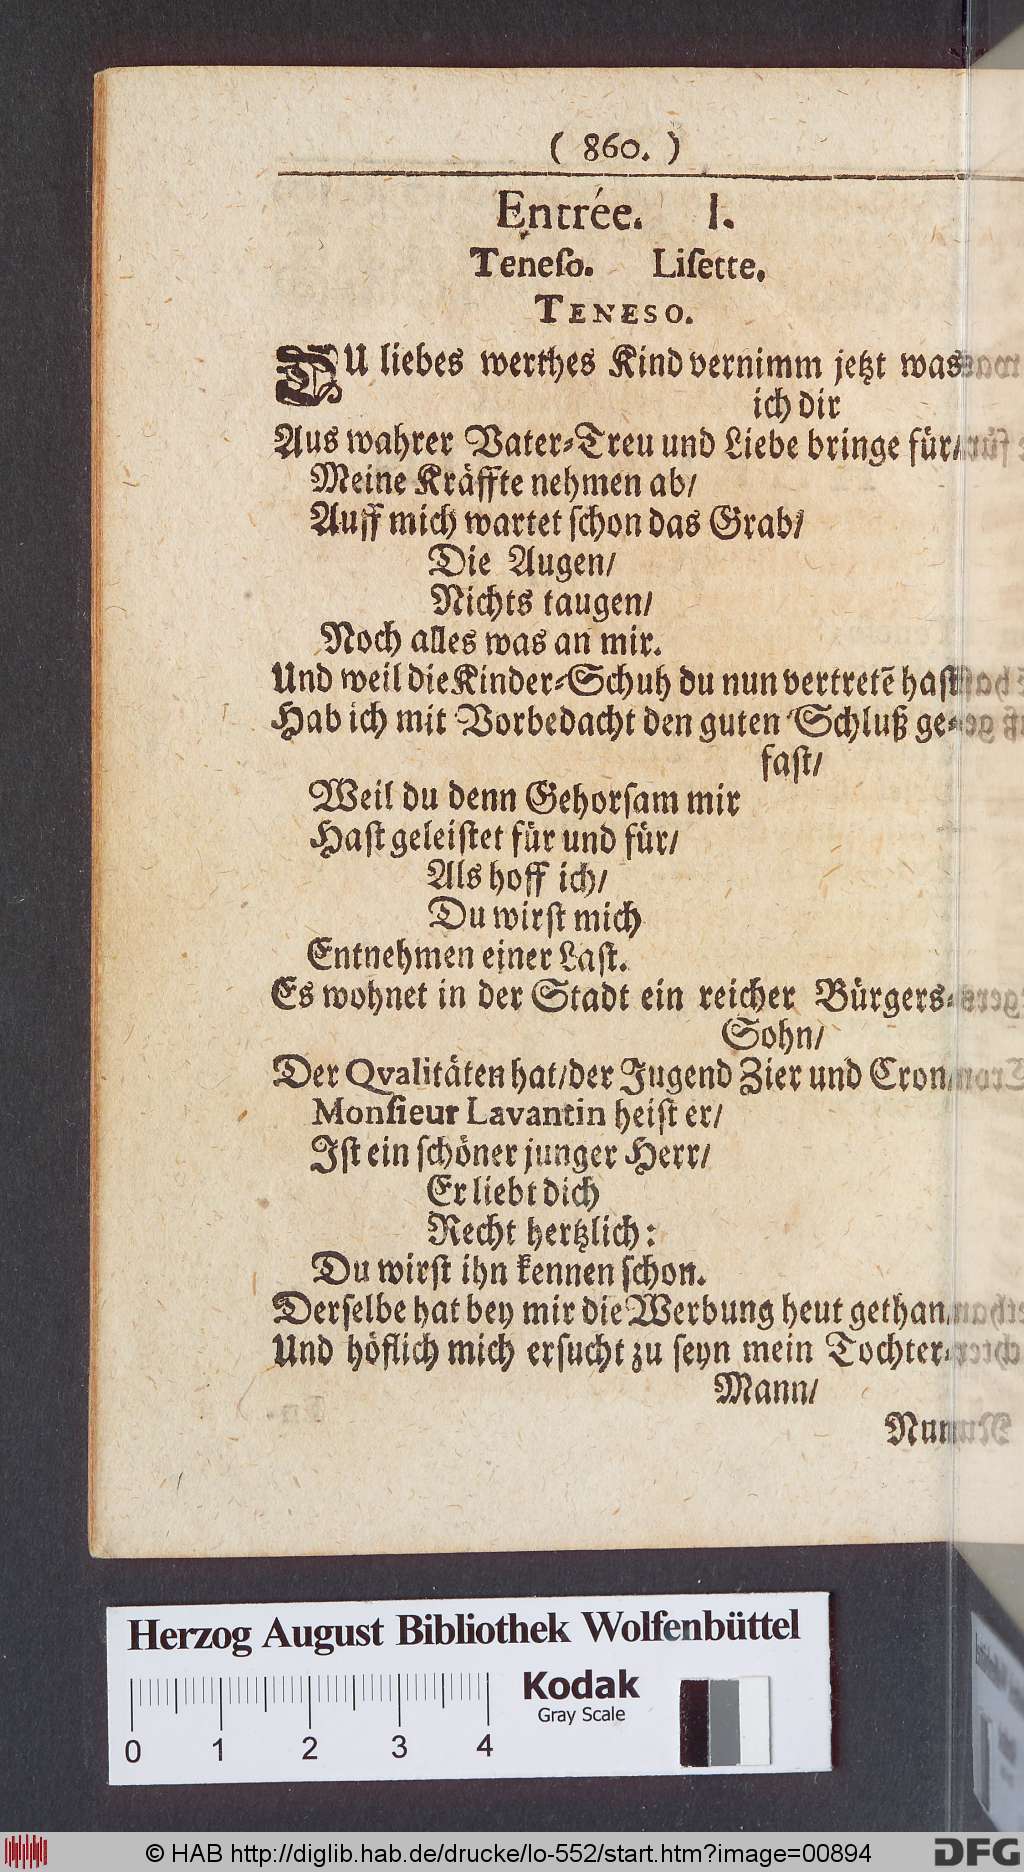 ( 860. )
Entrée. I.
Teneſo. Liſette.
TENESO.
DU liebes werthes Kind vernimm jetzt was
ich dir
Aus wahrer Vater-Treu und Liebe bringe für/
Meine Kräffte nehmen ab/
Auff mich wartet ſchon das Grab/
Die Augen/
Nichts taugen/
Noch alles was an mir.
Und weil die Kinder-Schuh du nun vertretē haſt
Hab ich mit Vorbedacht den guten Schluß ge-
faſt/
Weil du denn Gehorſam mir
Haſt geleiſtet für und für/
Als hoff ich/
Du wirſt mich
Entnehmen einer Laſt.
Es wohnet in der Stadt ein reicher Bürgers-
Sohn/
Der Qvalitäten hat/der Jugend Zier und Cron/
Monſieur Lavantin heiſt er/
Iſt ein ſchöner junger Herr/
Er liebt dich
Recht hertzlich:
Du wirſt ihn kennen ſchon.
Derſelbe hat bey mir die Werbung heut gethan/
Und höflich mich erſucht zu ſeyn mein Tochter-
Mann/
Nun
Herzog August Bibliothek Wolfenbüttel
Kodak
Gray Scale
0 1 2 3 4
© HAB http://diglib.hab.de/drucke/lo-552/start.htm?image=00894
DFG